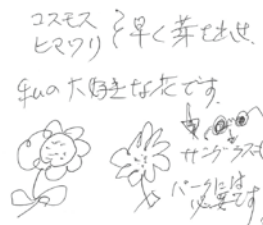 コスモス
ヒマワリ
早く芽を出せ
私の大好きな花です。
サングラスも
パークには
必要です。